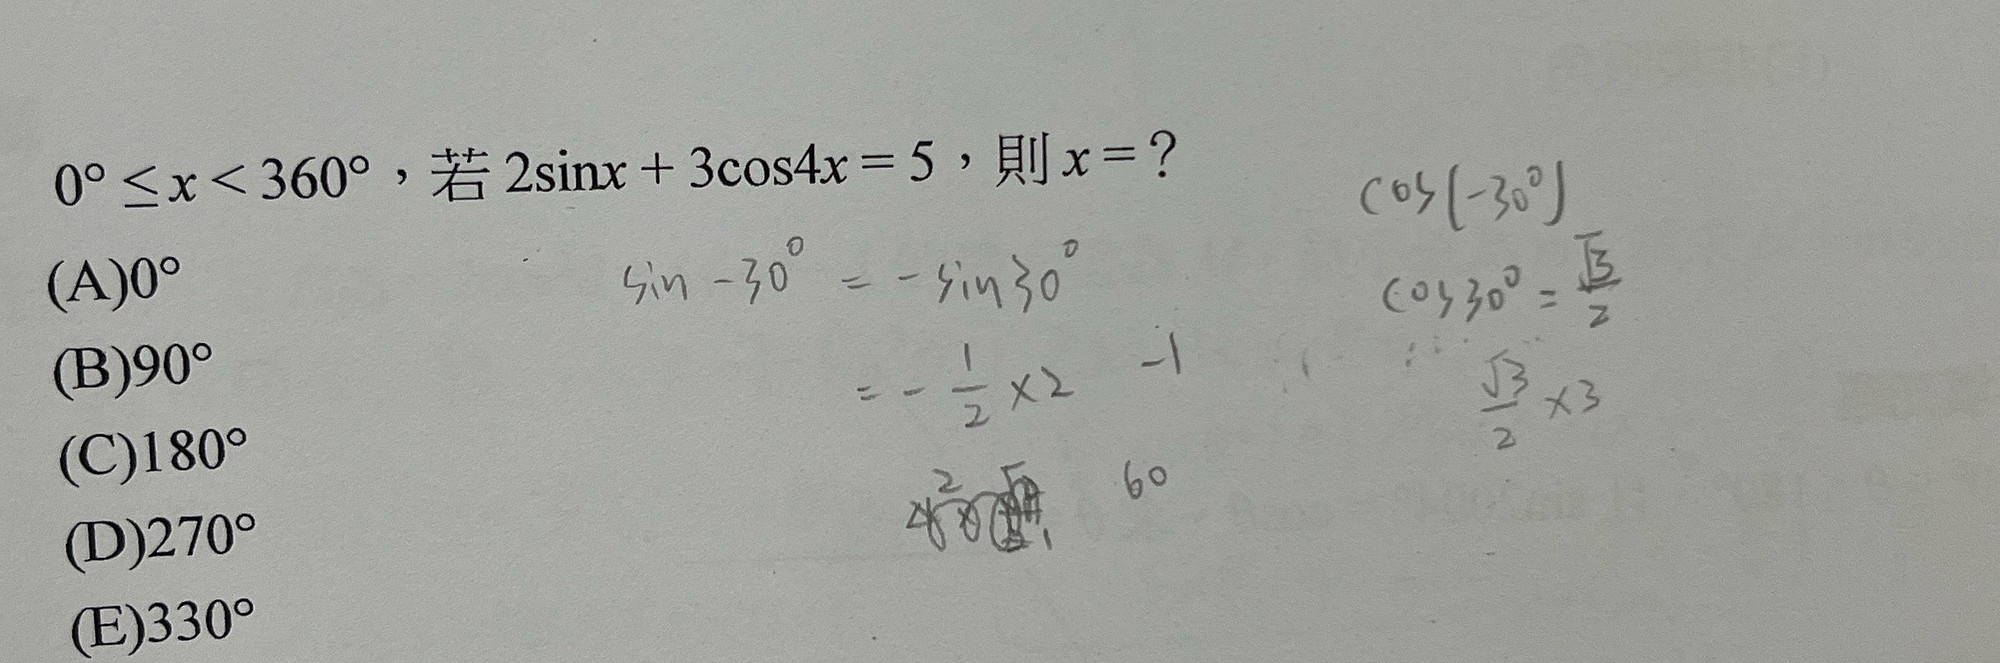 0° ≤ x < 360°，若 2sinx + 3cos4x = 5，則 x = ?
(A)0°
(B)90°
(C)180°
(D)270°
(E)330°
sin -30° = - sin30°
= - 1/2 ×2 -1
60
cos(-30°)
cos30° = √3/2
√3/2 ×3